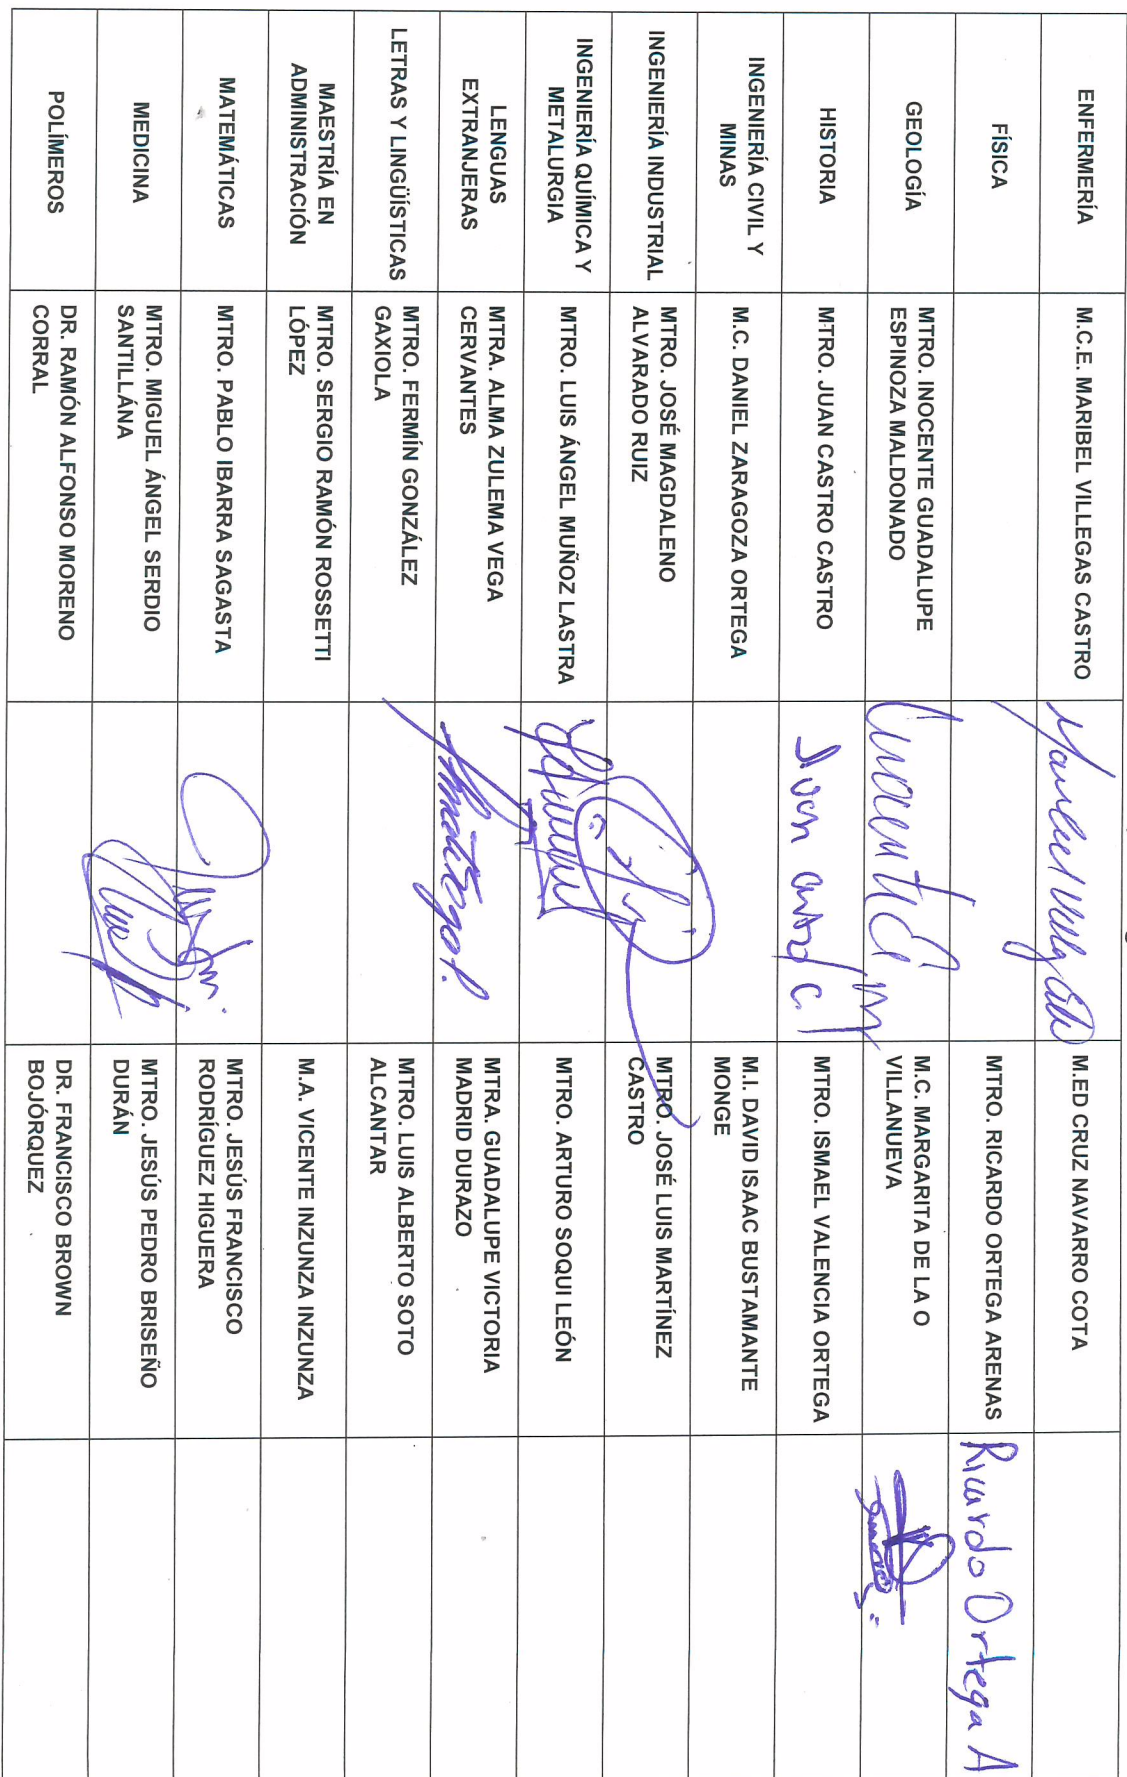 ENFERMERÍA
M.C.E. MARIBEL VILLEGAS CASTRO
M.ED CRUZ NAVARRO COTA
FÍSICA
MTRO. RICARDO ORTEGA ARENAS
Ricardo Ortega A
GEOLOGÍA
MTRO. INOCENTE GUADALUPE
ESPINOZA MALDONADO
Inocente E. M
M.C. MARGARITA DE LA O
VILLANUEVA
HISTORIA
MTRO. JUAN CASTRO CASTRO
Juan Castro C.
MTRO. ISMAEL VALENCIA ORTEGA
INGENIERÍA CIVIL Y
MINAS
M.C. DANIEL ZARAGOZA ORTEGA
M.I. DAVID ISAAC BUSTAMANTE
MONGE
INGENIERÍA INDUSTRIAL
MTRO. JOSÉ MAGDALENO
ALVARADO RUIZ
MTRO. JOSÉ LUIS MARTÍNEZ
CASTRO
INGENIERÍA QUÍMICA Y
METALURGIA
MTRO. LUIS ÁNGEL MUÑOZ LASTRA
MTRO. ARTURO SOQUI LEÓN
LENGUAS
EXTRANJERAS
MTRA. ALMA ZULEMA VEGA
CERVANTES
MTRA. GUADALUPE VICTORIA
MADRID DURAZO
LETRAS Y LINGÜÍSTICAS
MTRO. FERMÍN GONZÁLEZ
GAXIOLA
MTRO. LUIS ALBERTO SOTO
ALCANTAR
MAESTRÍA EN
ADMINISTRACIÓN
MTRO. SERGIO RAMÓN ROSSETTI
LÓPEZ
M.A. VICENTE INZUNZA INZUNZA
MATEMÁTICAS
MTRO. PABLO IBARRA SAGASTA
MTRO. JESÚS FRANCISCO
RODRÍGUEZ HIGUERA
MEDICINA
MTRO. MIGUEL ÁNGEL SERDIO
SANTILLÁNA
MTRO. JESÚS PEDRO BRISEÑO
DURÁN
POLÍMEROS
DR. RAMÓN ALFONSO MORENO
CORRAL
DR. FRANCISCO BROWN
BOJÓRQUEZ